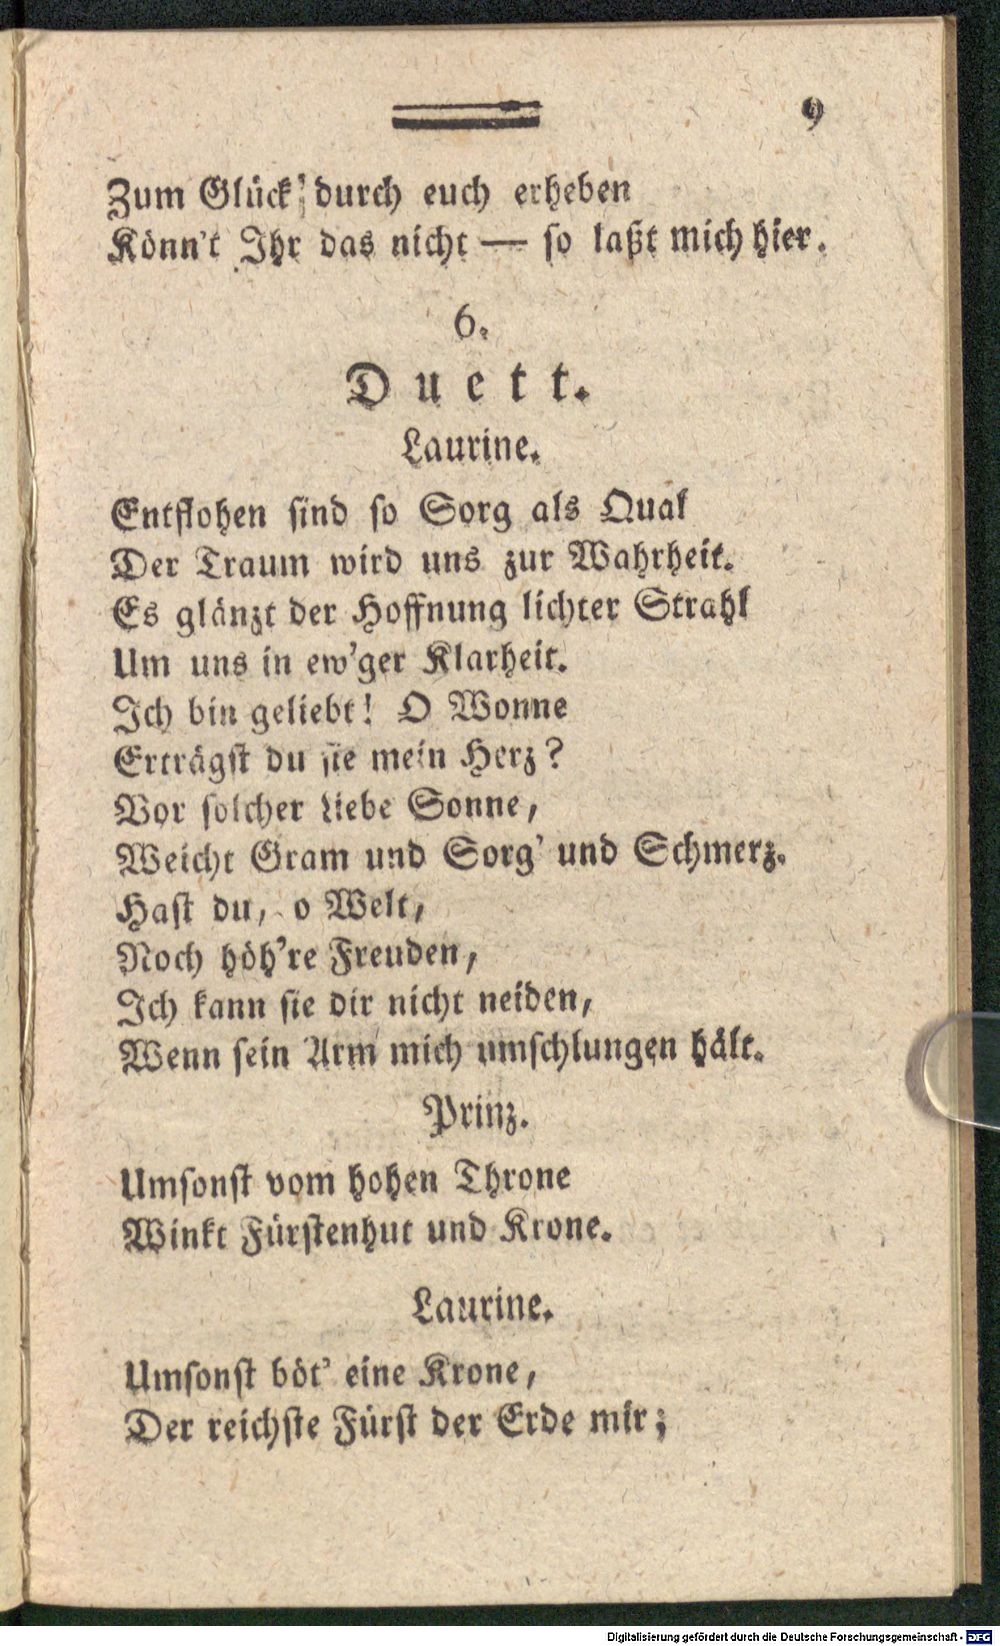 9
Zum Glück' durch euch erheben
Könn't Ihr das nicht — so laßt mich hier.
6.
Duett.
Laurine.
Entflohen sind so Sorg als Qual
Der Traum wird uns zur Wahrheit.
Es glänzt der Hoffnung lichter Strahl
Um uns in ew'ger Klarheit.
Ich bin geliebt! O Wonne
Erträgst du sie mein Herz?
Vor solcher Liebe Sonne,
Weicht Gram und Sorg' und Schmerz.
Hast du, o Welt,
Noch höh're Freuden,
Ich kann sie dir nicht neiden,
Wenn sein Arm mich umschlungen hält.
Prinz.
Umsonst vom hohen Throne
Winkt Fürstenhut und Krone.
Laurine.
Umsonst böt' eine Krone,
Der reichste Fürst der Erde mir;
Digitalisierung gefördert durch die Deutsche Forschungsgemeinschaft - DFG